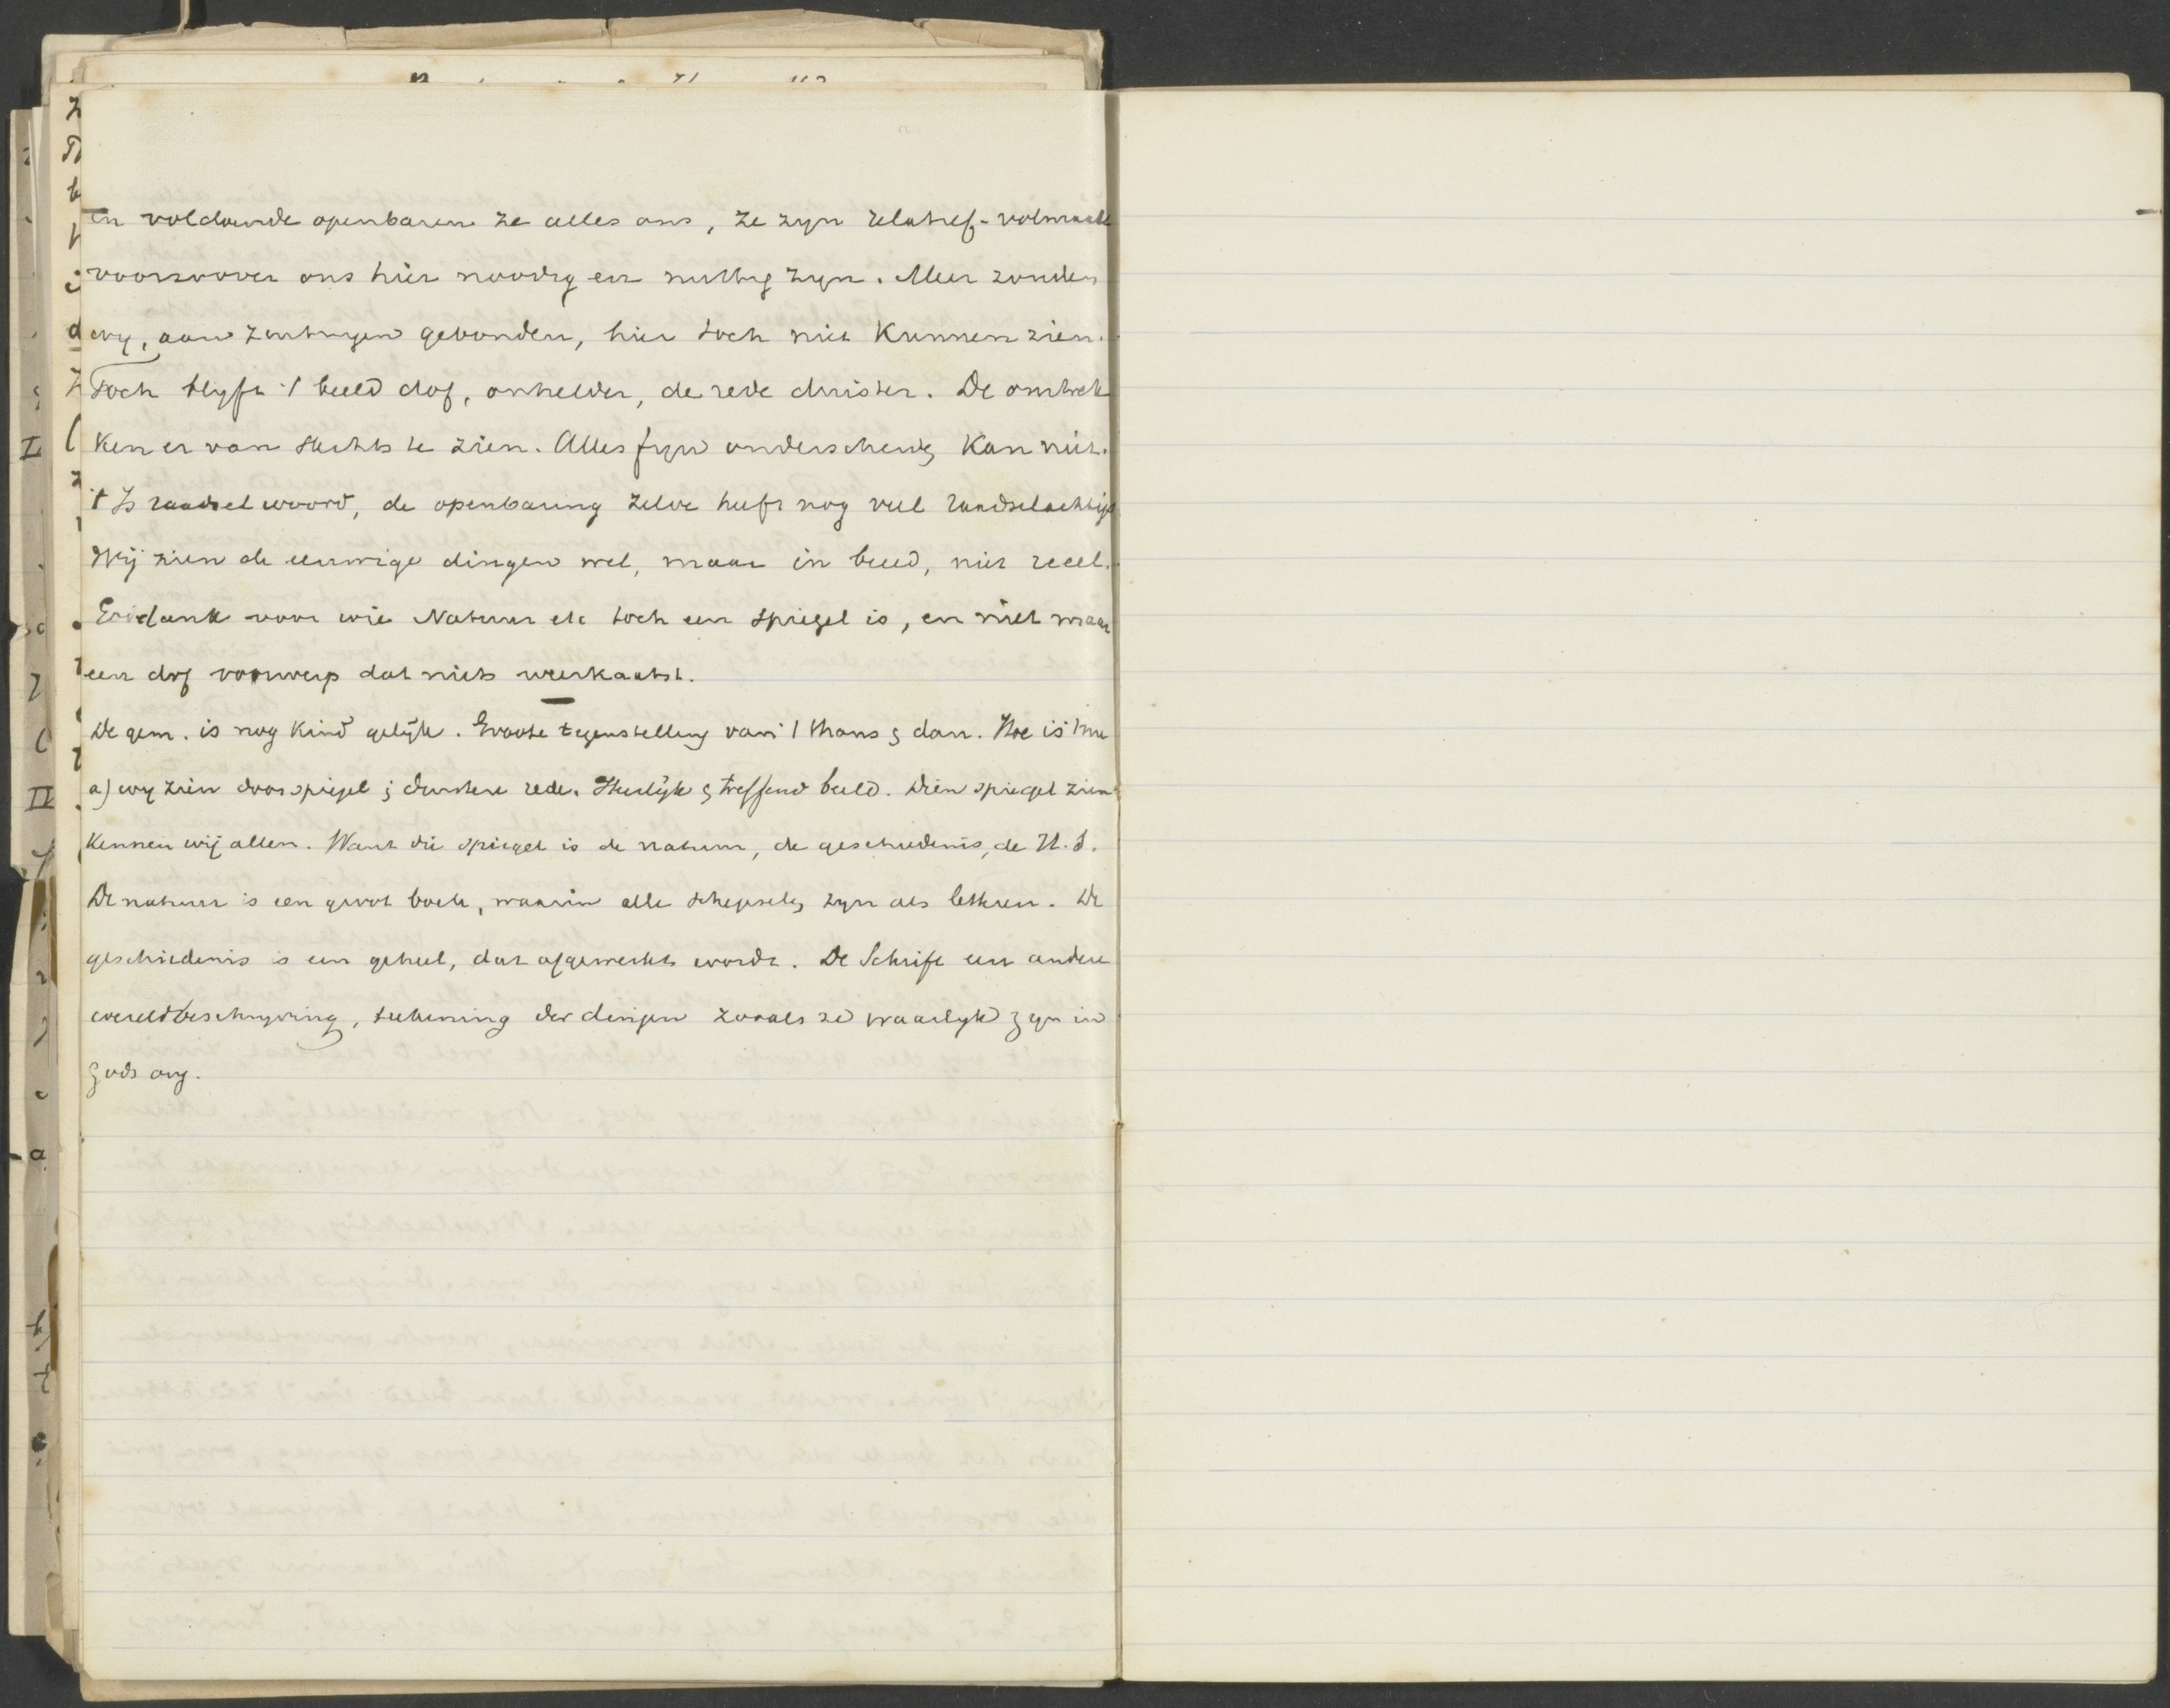 En voldoende openbaren ze alles ons, ze zyn relatief-volmaakt
voorzoover ons hier noodig en nuttig zyn. Meer zouden
wy, aan zintuigen gebonden, hier toch niet kunnen zien.
Toch blyft 't beeld dof, onhelder, de rede duister. De omtrek
ken er van slechts te zien. Alles fyn onderscheid. kan niet.
't Is raadselwoord, de openbaring zelve heeft nog veel raadselachtigs
Wij zien de eeuwige dingen wel, maar in beeld, niet reëel.
Godedank voor wie Natuur etc toch een spiegel is, en niet maar
een dof voorwerp dat niets weerkaatst.
De gem. is nog kind gelijk. Groote tegenstelling van 't thans & dan. Hoe is 't nu
a) wy zien door spiegel & duistere rede. Heerlijk & treffend beeld. Dien spiegel
kennen wij allen. Want die spiegel is de natuur, de geschiedenis, de H.S.
De natuur is een groot boek, waarin alle schepsels zyn als letteren. De
geschiedenis is een geheel, dat afgewerkt wordt. De Schrift een andere
wereldbeschryving, teekening der dingen zooals ze waarlyk zyn in
Gods oog.
I
II